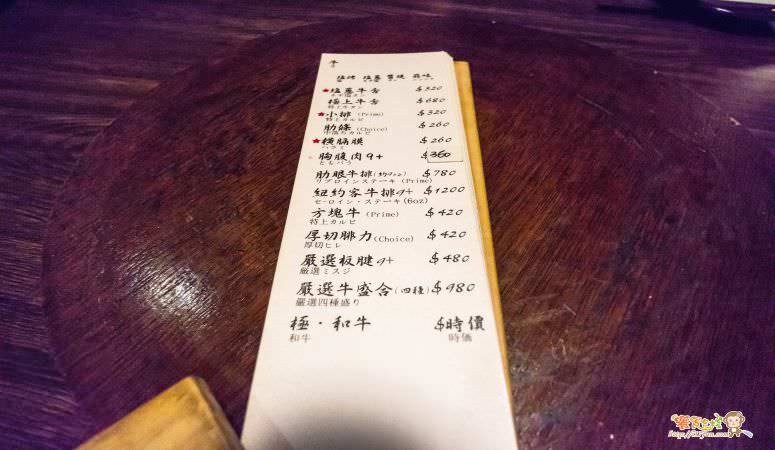 牛
塩烤 塩蔥 醬燒 蒜味
★塩蔥牛舌 $320
極上牛舌 $680
特上牛タン
★小排 (Prime) $320
特上カルビ
肋條 (Choice) $260
中落ちカルビ
★橫膈膜 $260
ハラミ
胸腹肉9+ $360
ともバラ
肋眼牛排(約9oz) $780
リブロインステーキ (Prime)
紐約客牛排9+ $1200
サーロイン・ステーキ(6oz)
方塊牛 (Prime) $420
特上カルビ
厚切腓力(Choice) $420
厚切ヒレ
嚴選板腱9+ $480
厳選ミスジ
嚴選牛盛合(四種) $980
厳選四種盛り
極・和牛 $時價
和牛 時価